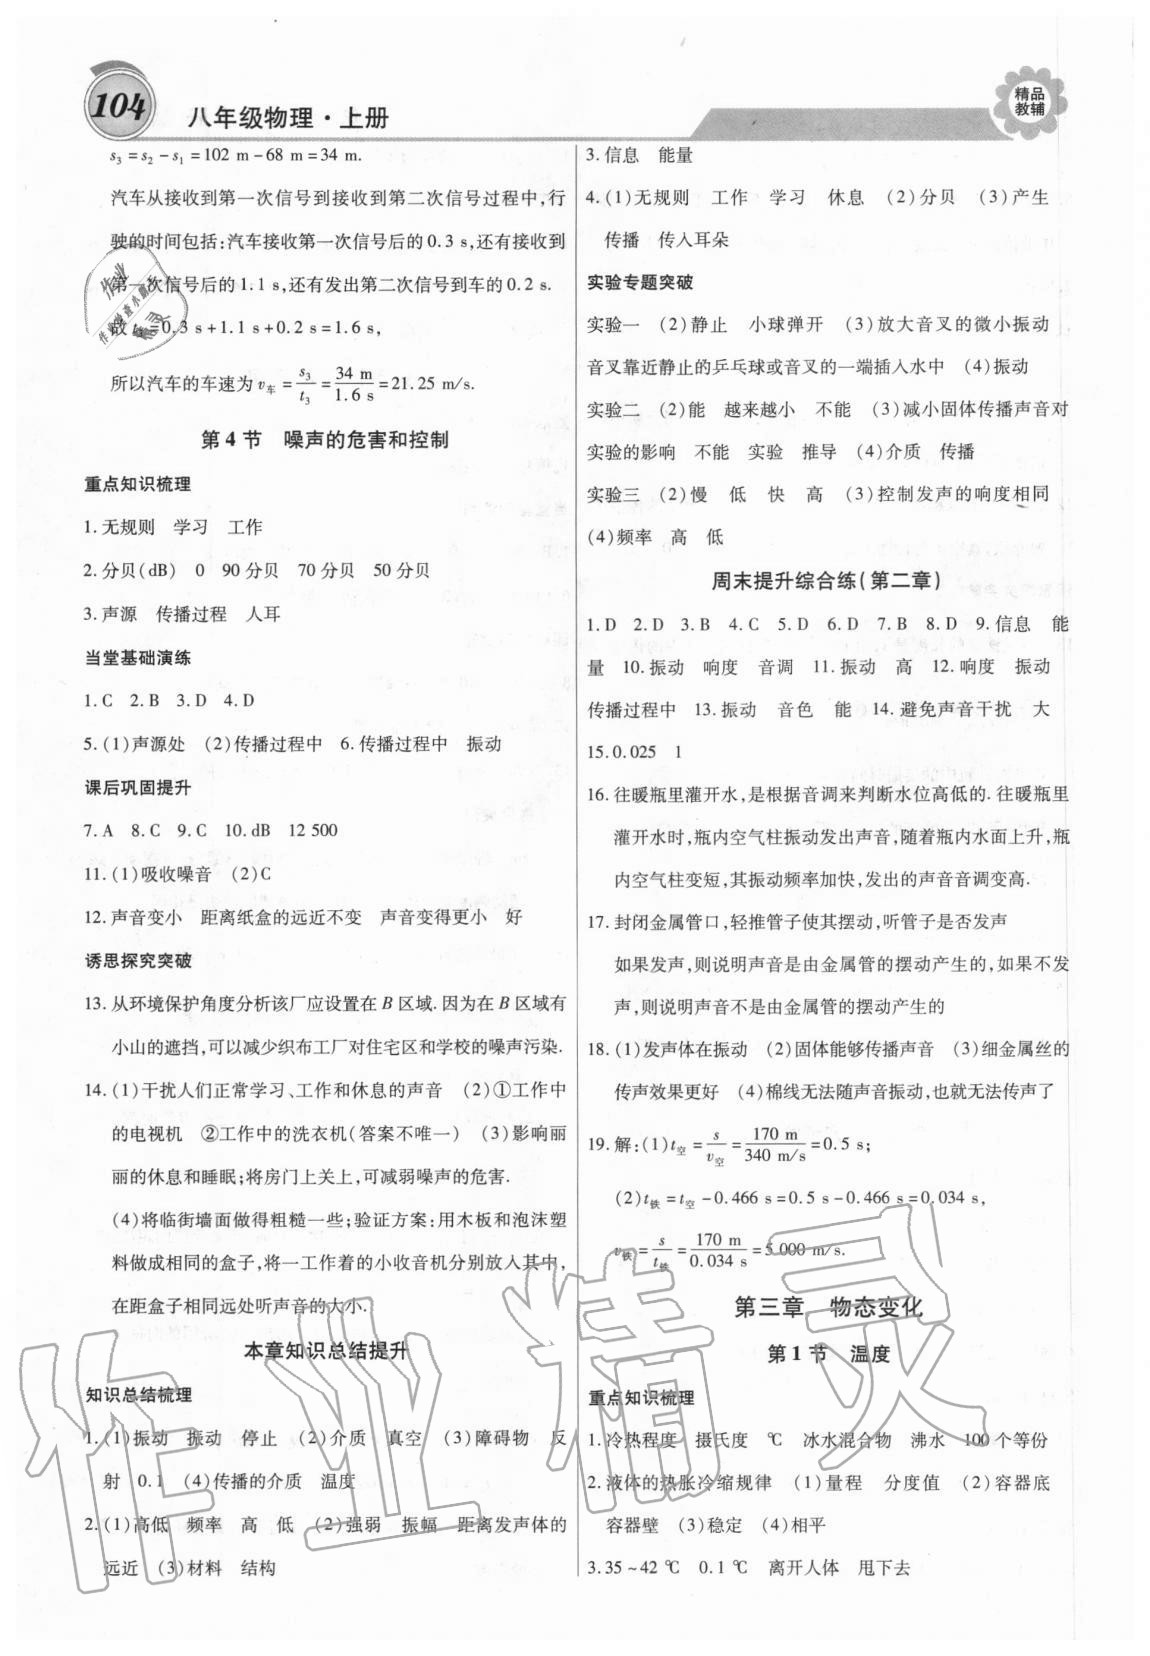 104
八年级物理·上册
精品
教辅
s₃=s₂-s₁=102 m-68 m=34 m.
汽车从接收到第一次信号到接收到第二次信号过程中,行
驶的时间包括:汽车接收第一次信号后的0.3 s,还有接收到
第一次信号后的1.1 s,还有发出第二次信号到车的0.2 s.
故t₃=0.3 s+1.1 s+0.2 s=1.6 s,
所以汽车的车速为v车=s₃/t₃=34 m/1.6 s=21.25 m/s.
第4节 噪声的危害和控制
重点知识梳理
1.无规则 学习 工作
2.分贝(dB) 0 90分贝 70分贝 50分贝
3.声源 传播过程 人耳
当堂基础演练
1.C 2.B 3.D 4.D
5.(1)声源处 (2)传播过程中 6.传播过程中 振动
课后巩固提升
7.A 8.C 9.C 10.dB 12 500
11.(1)吸收噪音 (2)C
12.声音变小 距离纸盒的远近不变 声音变得更小 好
诱思探究突破
13.从环境保护角度分析该厂应设置在B区域.因为在B区域有
小山的遮挡,可以减少织布工厂对住宅区和学校的噪声污染.
14.(1)干扰人们正常学习、工作和休息的声音 (2)①工作中
的电视机 ②工作中的洗衣机(答案不唯一) (3)影响丽
丽的休息和睡眠;将房门上关上,可减弱噪声的危害.
(4)将临街墙面做得粗糙一些;验证方案:用木板和泡沫塑
料做成相同的盒子,将一工作着的小收音机分别放入其中,
在距盒子相同远处听声音的大小.
本章知识总结提升
知识总结梳理
1.(1)振动 振动 停止 (2)介质 真空 (3)障碍物 反
射 0.1 (4)传播的介质 温度
2.(1)高低 频率 高 低 (2)强弱 振幅 距离发声体的
远近 (3)材料 结构
3.信息 能量
4.(1)无规则 工作 学习 休息 (2)分贝 (3)产生
传播 传入耳朵
实验专题突破
实验一 (2)静止 小球弹开 (3)放大音叉的微小振动
音叉靠近静止的乒乓球或音叉的一端插入水中 (4)振动
实验二 (2)能 越来越小 不能 (3)减小固体传播声音对
实验的影响 不能 实验 推导 (4)介质 传播
实验三 (2)慢 低 快 高 (3)控制发声的响度相同
(4)频率 高 低
周末提升综合练(第二章)
1.D 2.D 3.B 4.C 5.D 6.D 7.B 8.D 9.信息 能
量 10.振动 响度 音调 11.振动 高 12.响度 振动
传播过程中 13.振动 音色 能 14.避免声音干扰 大
15.0.025 1
16.往暖瓶里灌开水,是根据音调来判断水位高低的.往暖瓶里
灌开水时,瓶内空气柱振动发出声音,随着瓶内水面上升,瓶
内空气柱变短,其振动频率加快,发出的声音音调变高.
17.封闭金属管口,轻推管子使其摆动,听管子是否发声
如果发声,则说明声音是由金属管的摆动产生的,如果不发
声,则说明声音不是由金属管的摆动产生的
18.(1)发声体在振动 (2)固体能够传播声音 (3)细金属丝的
传声效果更好 (4)棉线无法随声音振动,也就无法传声了
19.解:(1)t空=s/v空=170 m/340 m/s=0.5 s;
(2)t铁=t空-0.466 s=0.5 s-0.466 s=0.034 s,
v铁=s/t铁=170 m/0.034 s=5 000 m/s.
第三章 物态变化
第1节 温度
重点知识梳理
1.冷热程度 摄氏度 ℃ 冰水混合物 沸水 100个等份
2.液体的热胀冷缩规律 (1)量程 分度值 (2)容器底
容器壁 (3)稳定 (4)相平
3.35~42 ℃ 0.1 ℃ 离开人体 甩下去
作业精灵